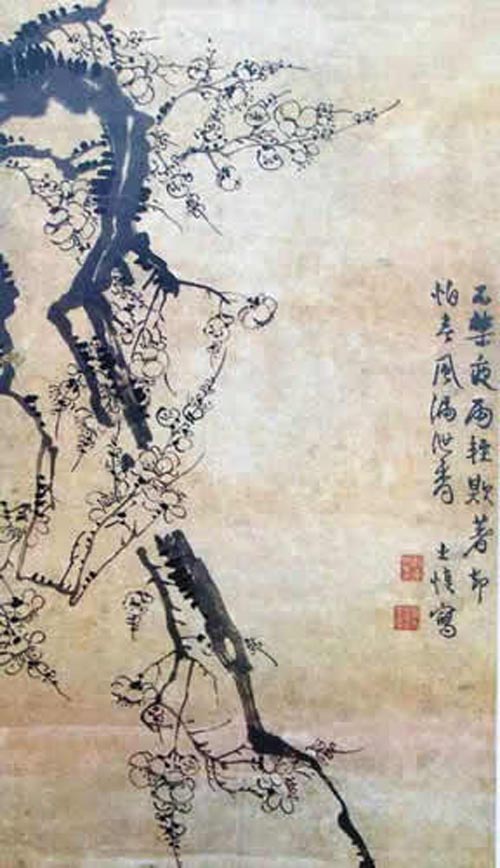 不禁夜雨輕欺著却
怕春風漏泄香
士慎寫